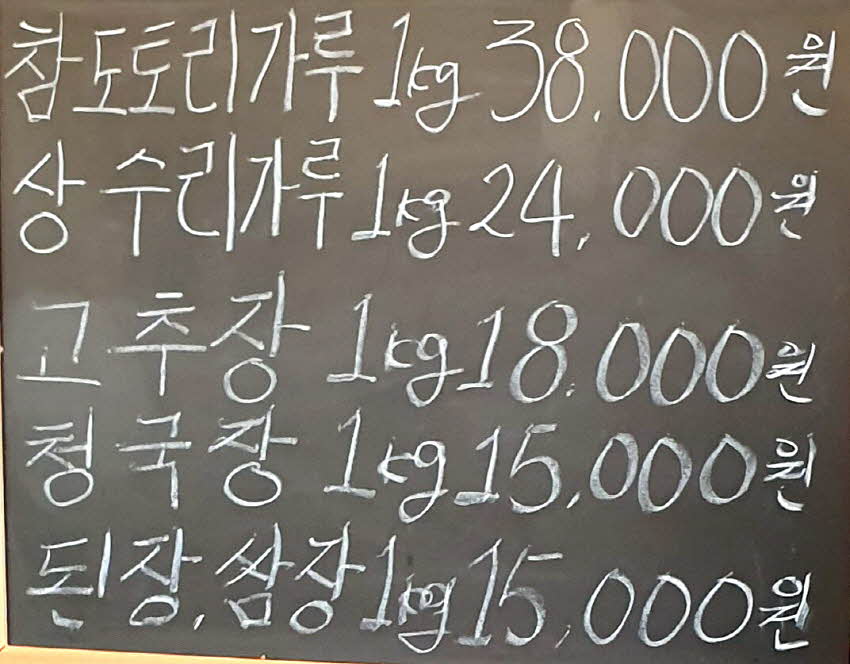 참도토리가루 1kg 38.000원
상수리가루 1kg 24,000원
고추장 1kg 18.000원
청국장 1kg 15,000원
된장, 쌈장 1kg 15,000원